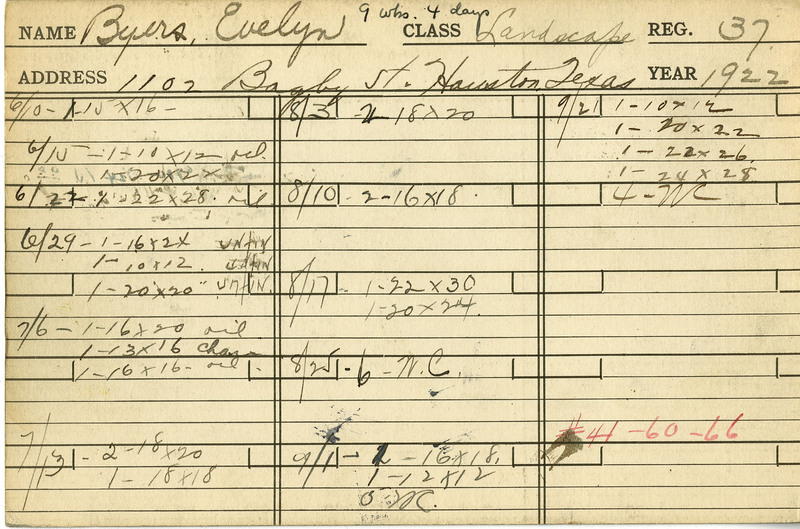 9 wks. 4 days
NAME Byers, Evelyn CLASS Landscape REG. 37
ADDRESS 1102 Bagby St. Houston, Texas YEAR 1922
6/10 - 1-15 x 16 -
6/15 - 1-10 x 12 oil
1-20 x 2
6/22 1-22 x 28. oil
6/29 - 1-16 x 2 UNFIN
1-10 x 12. UNFIN
1-20 x 20 UNFIN.
7/6 - 1-16 x 20 oil
1-13 x 16
1-16 x 16 - oil -
7/13 - 2-18 x 20
1-18 x 18
8/3 2 18 x 20
8/10 - 2-16 x 18.
8/17 - 1-22 x 30
1-20 x 24.
8/25 - 6 - W.C.
9/1 - 2 - 16 x 18.
1-12 x 12
W.C.
9/21 1-10 x 12
1-20 x 22
1-22 x 26.
1-24 x 28
4-WC
#41-60-66